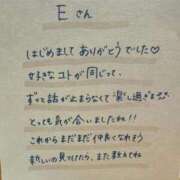 Eさん
はじめまして ありがとうでした♡
好きなコトが同じって、
ずっと話が止まらなくて楽し過ぎ
とっても気が合いましたね!!
これからまだまだ仲良くなれそう
見てけしたら、また教えてね